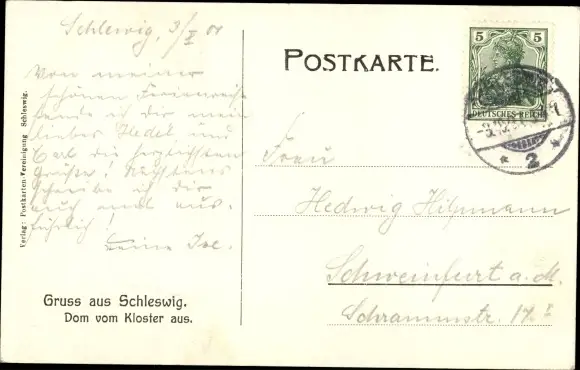 Schleswig, 3/X 01
Von meiner
schönen Ferienreise
sende ich dir mein
liebes Hedel und
Carl die herzlichsten
Grüße! Nächstens
schreibe ich dir
auch mal aus-
führlich!
Deine
Verlag: Postkarten-Vereinigung Schleswig.
Gruss aus Schleswig.
Dom vom Kloster aus.
POSTKARTE.
5 5
DEUTSCHES REICH
2
Frau
Hedwig Hilpmann
Schweinfurt a. M.
Schrammstr. 17